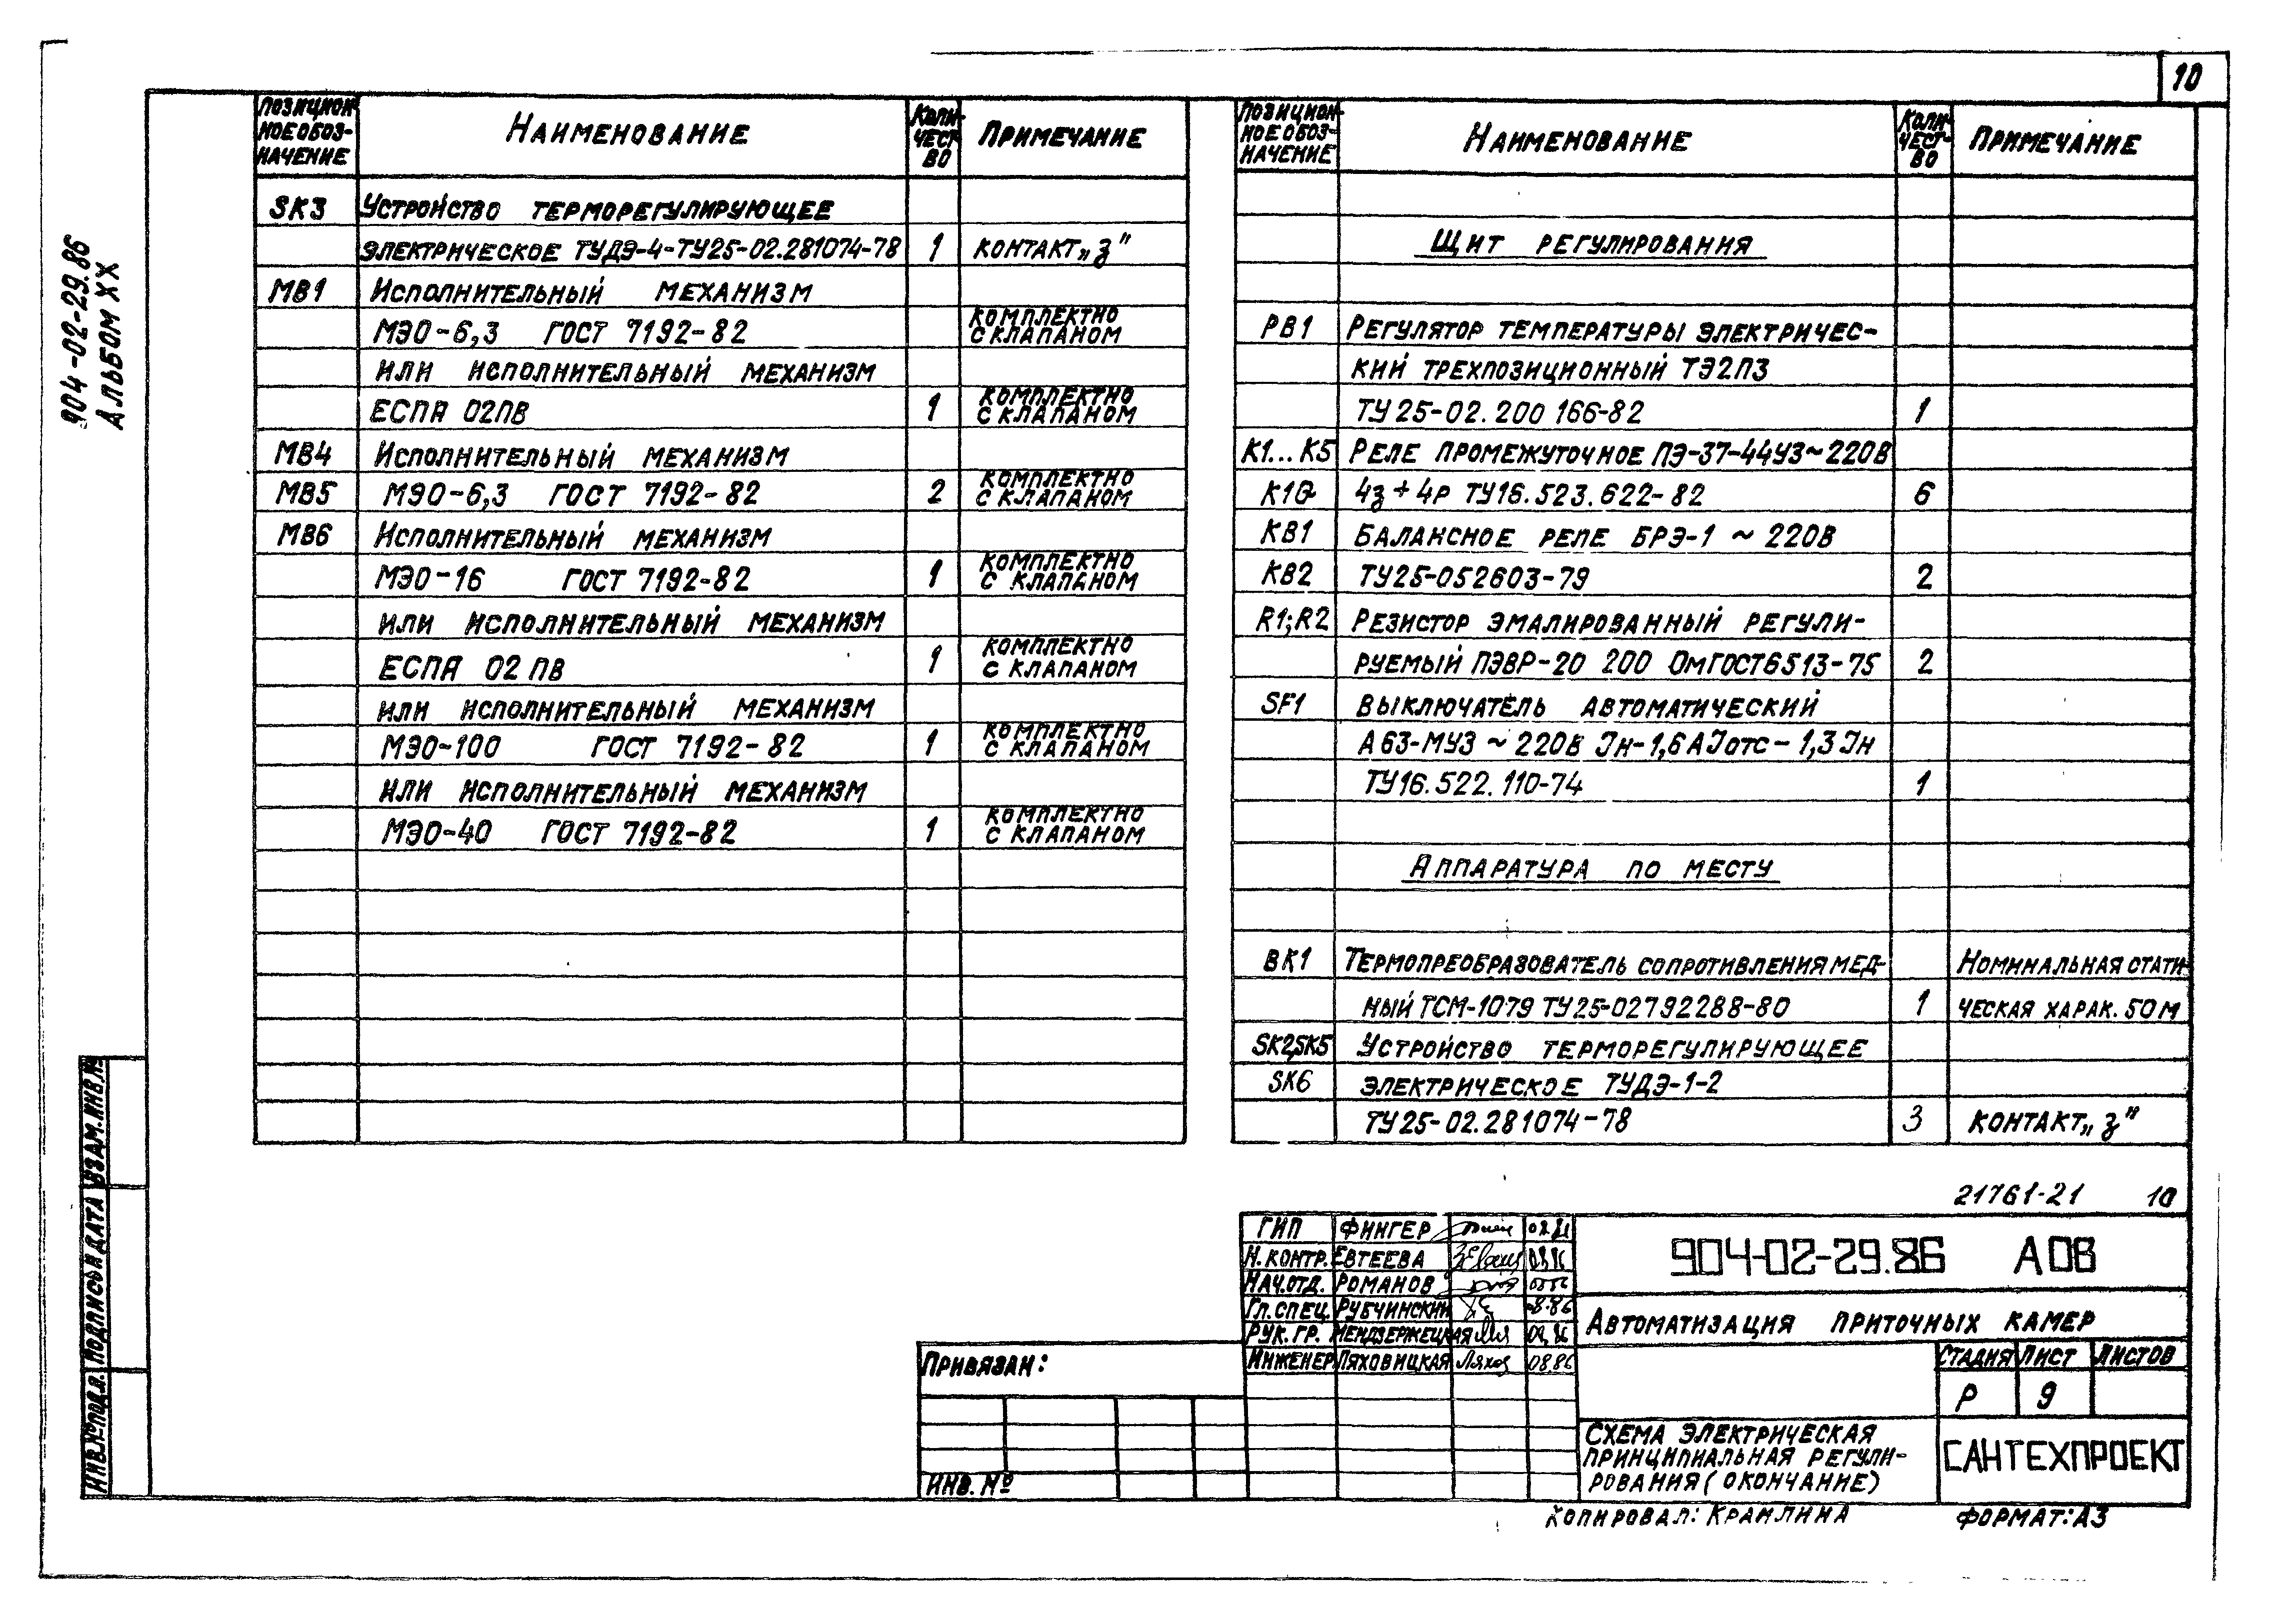 10
904-02-29.86
Альбом XX
Позицион-
ное обоз-
начение
Наименование
Коли-
чест-
во
Примечание
SK3 Устройство терморегулирующее
электрическое ТУДЭ-4-ТУ25-02.281074-78 1 контакт „з"
МВ1 Исполнительный механизм
МЭО-6,3 ГОСТ 7192-82 комплектно
с клапаном
или исполнительный механизм
ЕСПА 02ПВ 1 комплектно
с клапаном
МВ4 Исполнительный механизм
МВ5 МЭО-6,3 ГОСТ 7192-82 2 комплектно
с клапаном
МВ6 Исполнительный механизм
МЭО-16 ГОСТ 7192-82 1 комплектно
с клапаном
или исполнительный механизм
ЕСПА 02 ПВ 1 комплектно
с клапаном
или исполнительный механизм
МЭО-100 ГОСТ 7192-82 1 комплектно
с клапаном
или исполнительный механизм
МЭО-40 ГОСТ 7192-82 1 комплектно
с клапаном
Позицион-
ное обоз-
начение
Наименование
Коли-
чест-
во
Примечание
Щит регулирования
РВ1 Регулятор температуры электричес-
кий трехпозиционный ТЭ2П3
ТУ 25-02.200 166-82 1
К1...К5 Реле промежуточное ПЭ-37-44У3~220В
К10 4з + 4р ТУ16.523.622-82 6
КВ1 Балансное реле БРЭ-1 ~ 220В
КВ2 ТУ25-052603-79 2
R1;R2 Резистор эмалированный регули-
руемый ПЭВР-20 200 Ом ГОСТ6513-75 2
SF1 Выключатель автоматический
А63-МУ3 ~ 220В Iн-1,6А Iотс-1,3 Iн
ТУ16.522.110-74 1
Аппаратура по месту
ВК1 Термопреобразователь сопротивления мед- Номинальная стати-
ный ТСМ-1079 ТУ25-02792288-80 1 ческая харак. 50М
SK2,SK5 Устройство терморегулирующее
SK6 электрическое ТУДЭ-1-2
ТУ25-02.281074-78 3 контакт „з"
21761-21 10
ГИП Фингер
Н.контр. Евтеева
Нач.отд. Романов
Гл.спец. Рубчинский 08.86
Рук. гр. Мендзержецкая
Инженер Ляховицкая Ляхов 08.86
904-02-29.86 АОВ
Автоматизация приточных камер
Стадия Лист Листов
Р 9
Схема электрическая
принципиальная регули-
рования (окончание)
САНТЕХПРОЕКТ
Привязан:
Инв. №
Инв.№ подл. Подпись и дата Взам.инв.№
Копировал: Кранлина Формат: А3